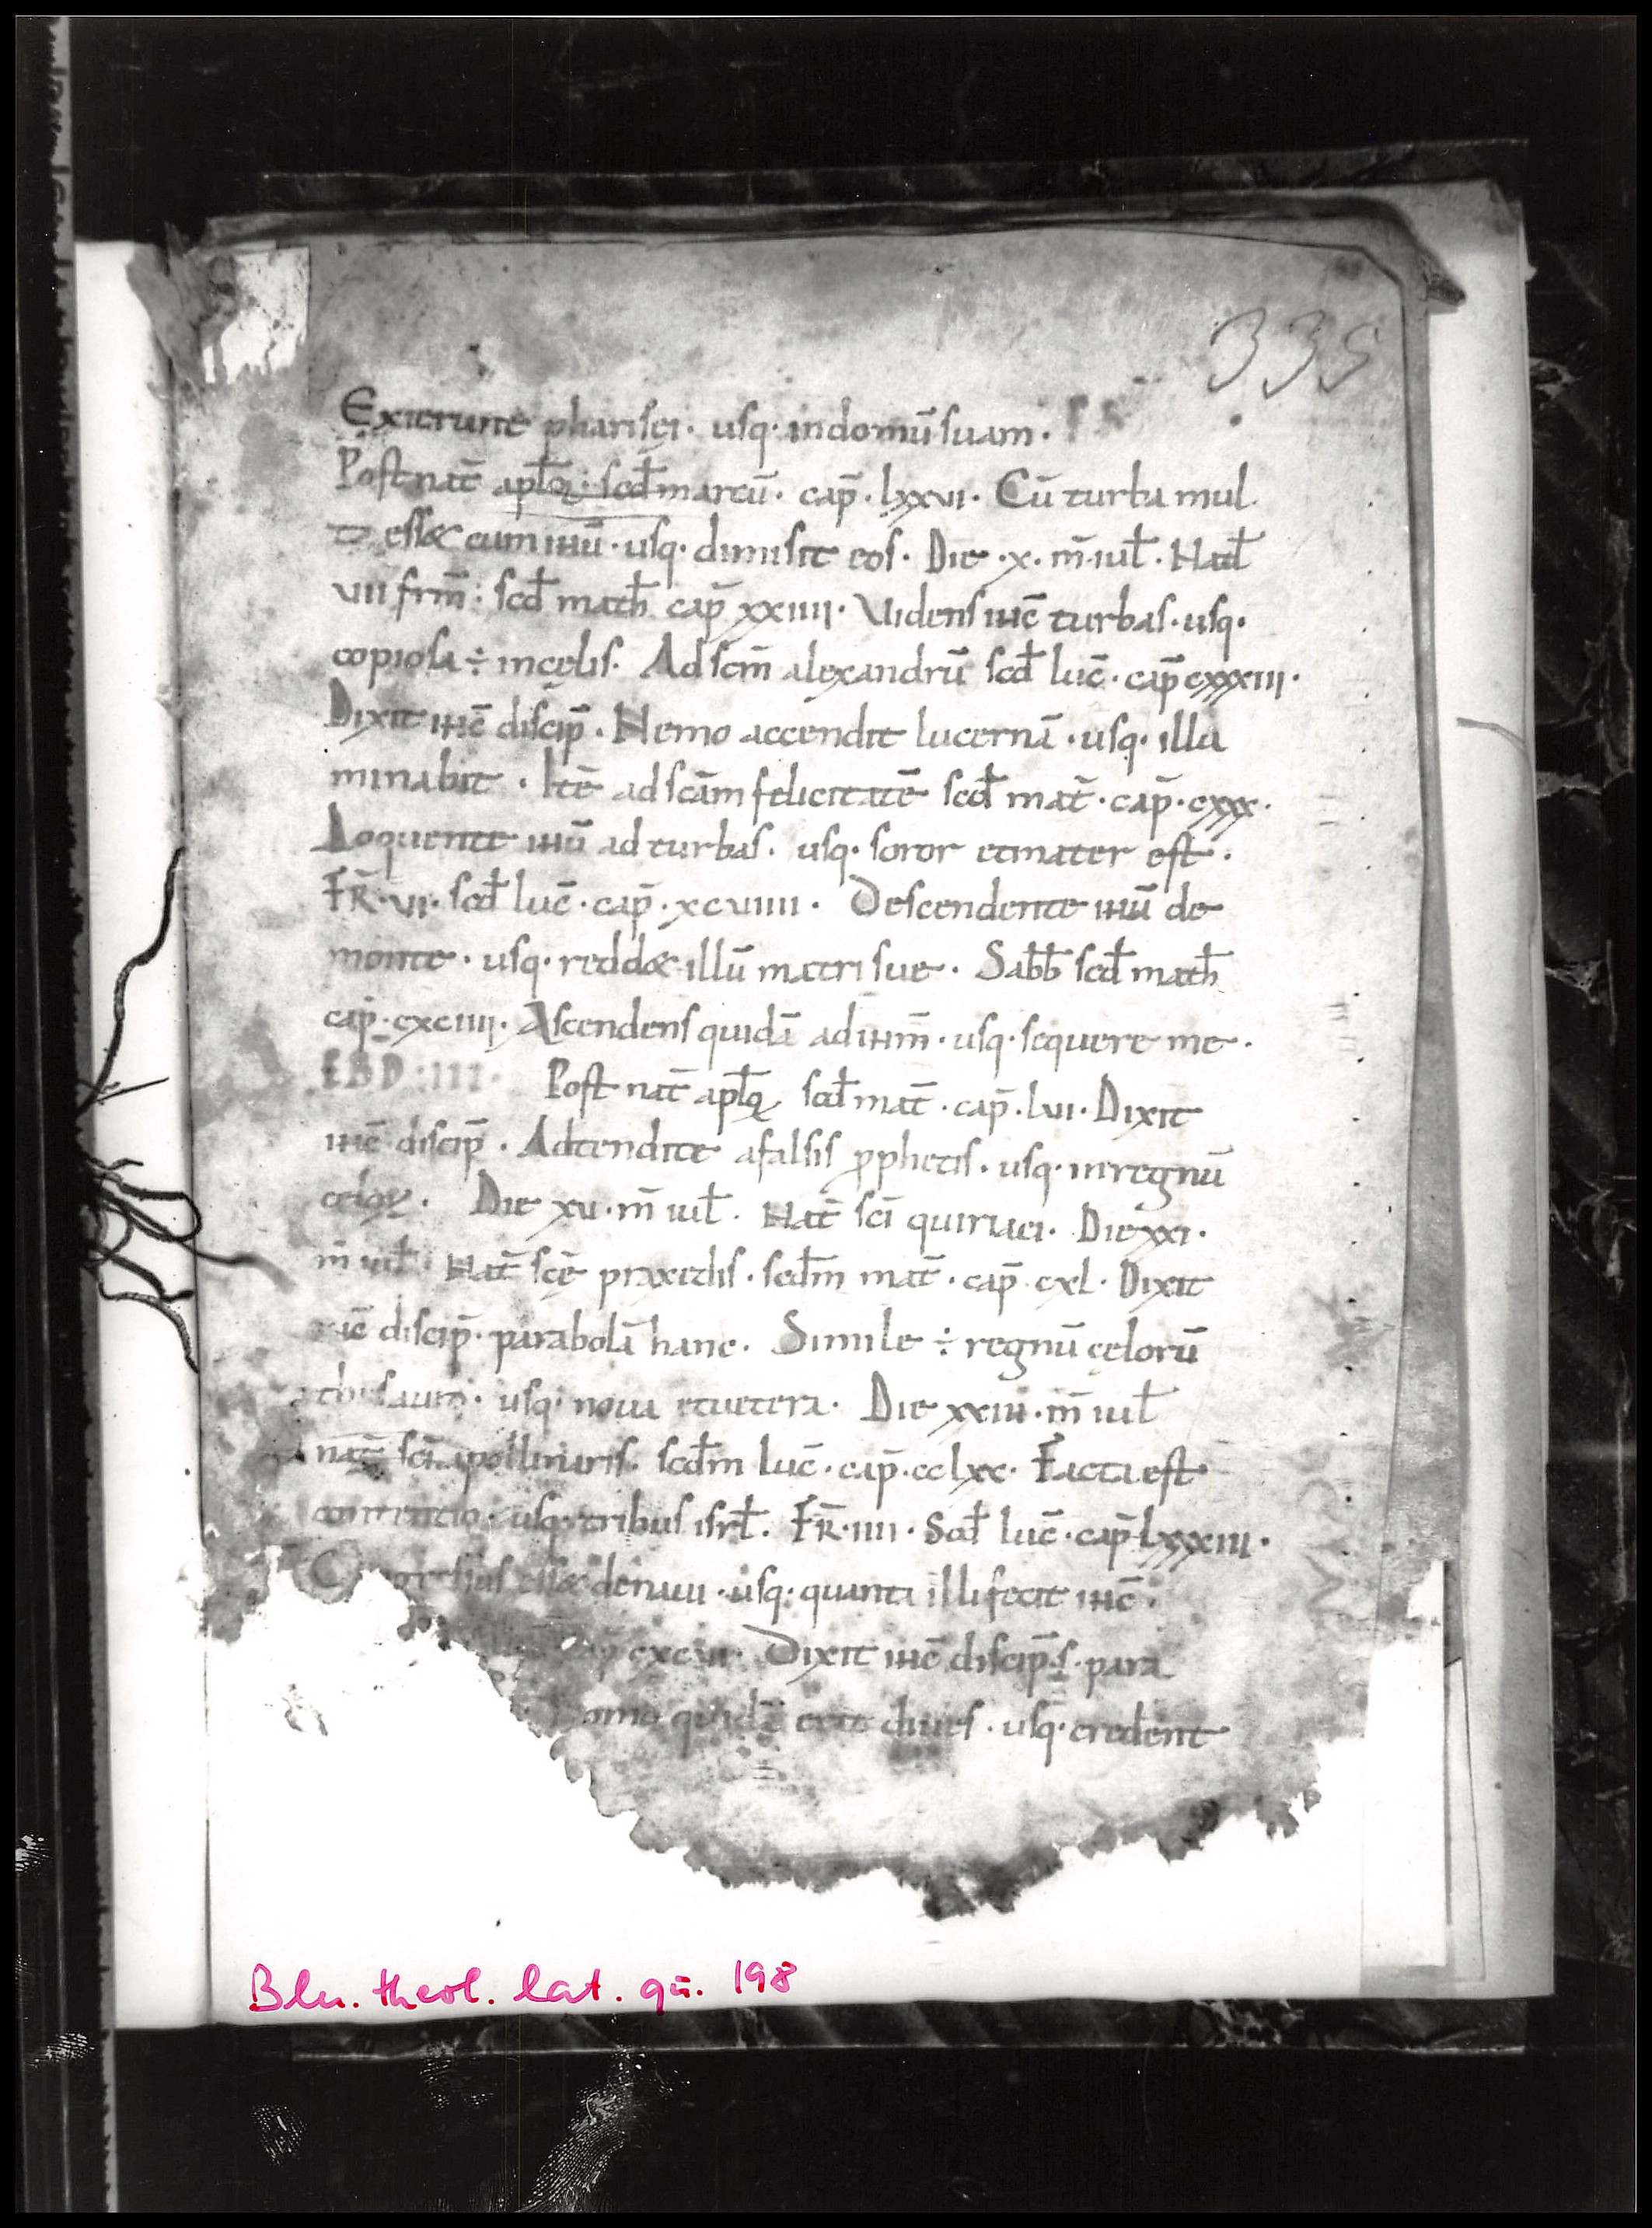 335
Exierunt pharisęi · usq· indomū suam ·
Post nat̄ apl̄oꝝ · scđ marcū · cap̄ · lxxvi · Cū turba mul
ta ess& cum ihū · usq· dimisit eos · Die · x · m̄ iul̄ · Natl̄
vii frm̄ · scđ math̄ cap̄ xxiiii · Videns ihc̄ turbas · usq·
copiosa ÷ incęlis · Ad scm̄ alexandrū scđ luc̄ · cap̄ cxxxiii ·
Dixit ihc̄ discip̄ · Nemo accendit lucernā · usq· illu
minabit · Itē ad scām felicitatē scđ mat̄ · cap̄ · cxxx ·
Loquente ihū ad turbas · usq· soror etmater est ·
FR̄ · vi · scđ luc̄ · cap̄ · xcviiii · Descendente ihū de
monte · usq· redd& illū matri sue · Sabb̄ scđ math̄
cap̄ · cxciiii · Ascendens quidā ad ihm̄ · usq· sequere me ·
EBD · III · Post nat̄ apl̄oꝝ scđ mat̄ · cap̄ · lvii · Dixit
ihc̄ discip̄ · Adtendite afalsis ꝓphetis · usq· inregnū
celoꝝ · Die xv · m̄ iul̄ · Nat̄ sci̅ quiriaci · Die xxi ·
m̄ iul̄ Nat̄ scē praxedis · scdm̄ mat̄ · cap̄ cxl · Dixit
ihc̄ discip̄ · parabolā hanc · Simile ÷ regnū cęlorū
thesauro · usq· noua etuetera · Die xxiii · m̄ iul̄
nat̄ sci̅ apollinaris · scdm̄ luc̄ · cap̄ · cclxx · Facta est
contentio · usq· tribus isrl̄ · FR̄ · iiii · Scđ luc̄ · cap̄ lxxxiii ·
denaui · usq· quanta illi fecit ihc̄ ·
cap̄ cxcvi · Dixit ihc̄ discip̄ · s · para
homo quidā erat diues · usq· credent
Bln. theol. lat. qu. 198